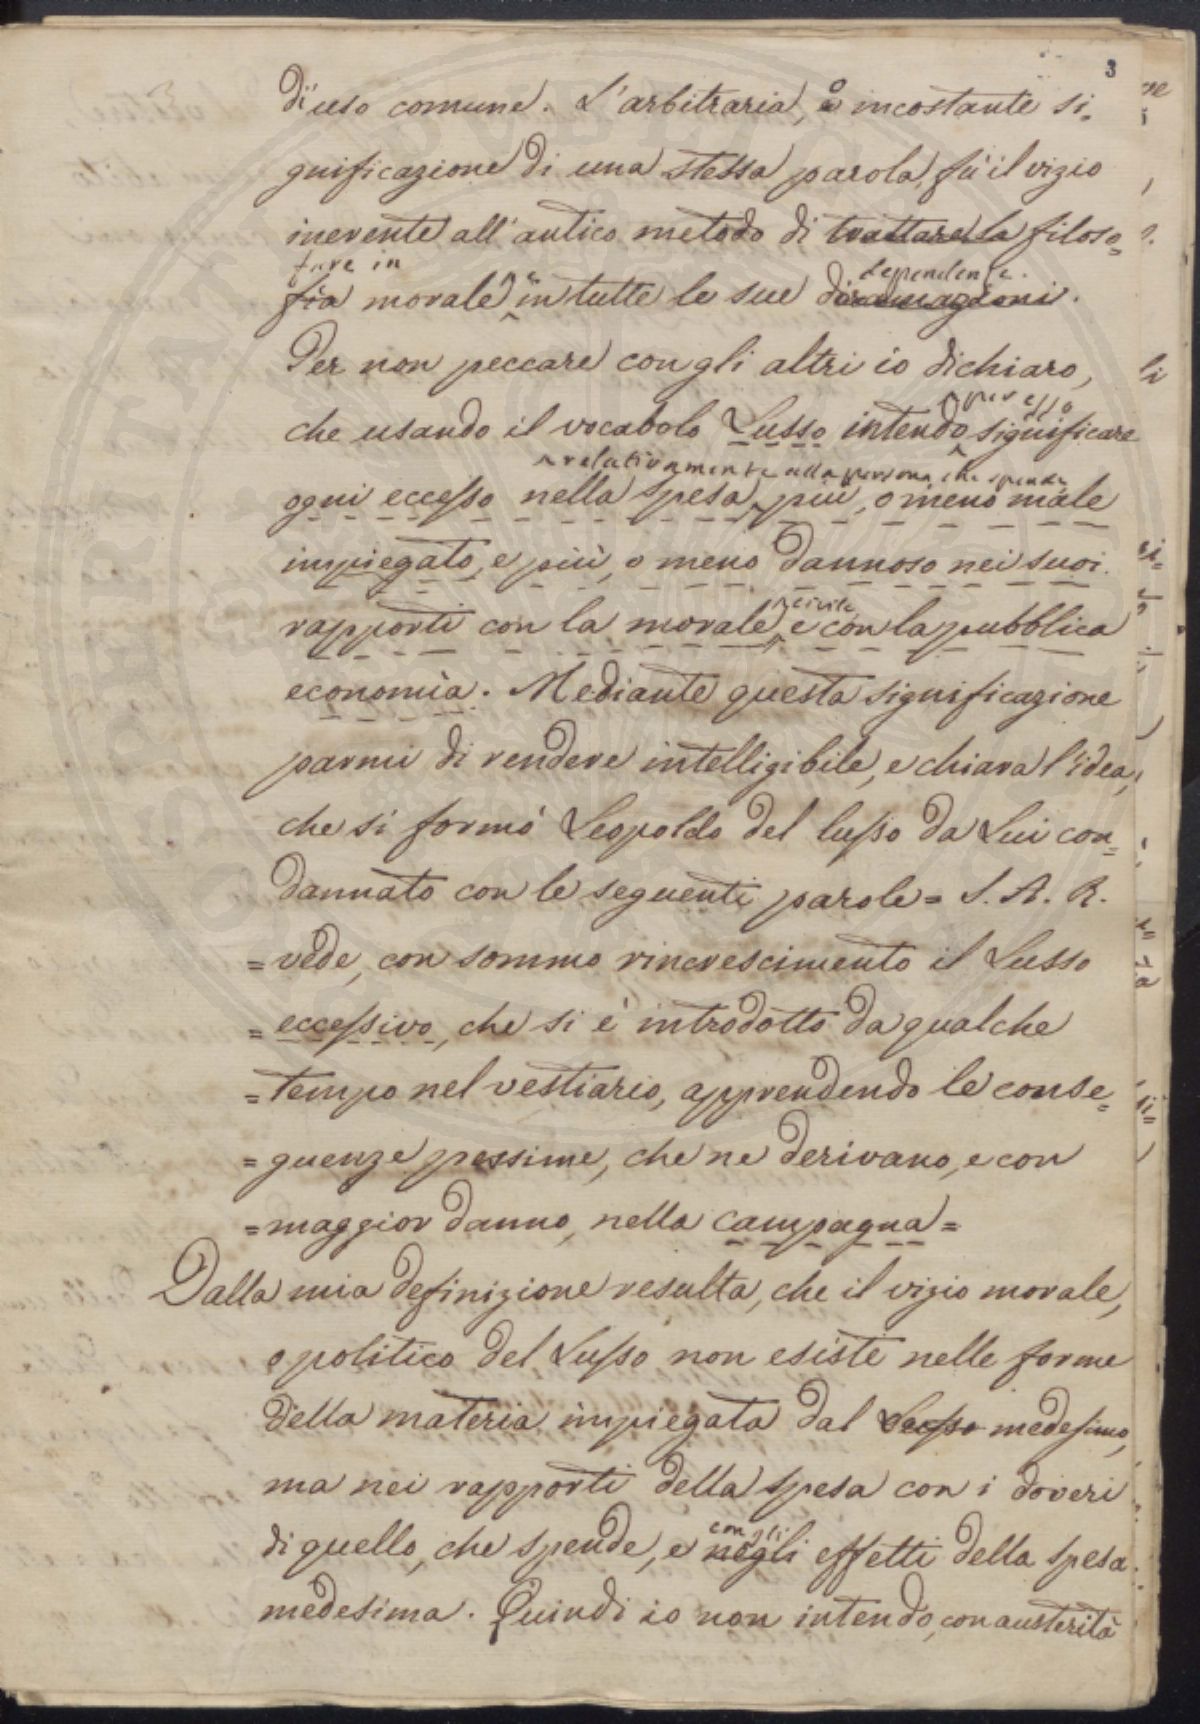 3
d'uso comune. L'arbitraria, o incostante si=
gnificazione di una stessa parola, fù il vizio
inerente all'antico metodo di trattare la filoso=
fare in
dependenze.
fia morale, in tutte le sue diramazioni.
Per non peccare con gli altri io dichiaro,
per esso
che usando il vocabolo Lusso intendo significare
relativamente alla persona, che spende
ogni eccesso nella spesa, più, o meno male
impiegato, e più, o meno dannoso nei suoi
civile
rapporti con la morale, e con la pubblica
economìa. Mediante questa significazione
parmi di rendere intelligibile, e chiara l'idea,
che si formò Leopoldo del lusso da Lui con=
dannato con le seguenti parole = S. A. R.
= vede, con sommo rincrescimento il Lusso
= eccessivo, che si è introdotto da qualche
= tempo nel vestiario, apprendendo le conse=
= guenze pessime, che ne derivano, e con
= maggior danno, nella campagna =
Dalla mia definizione resulta, che il vizio morale,
o politico del Lusso non esiste nelle forme
della materia impiegata dal Lusso medesimo,
ma nei rapporti della spesa con i doveri
con gli
di quello, che spende, e negli effetti della spesa
medesima. Quindi io non intendo, con austerità